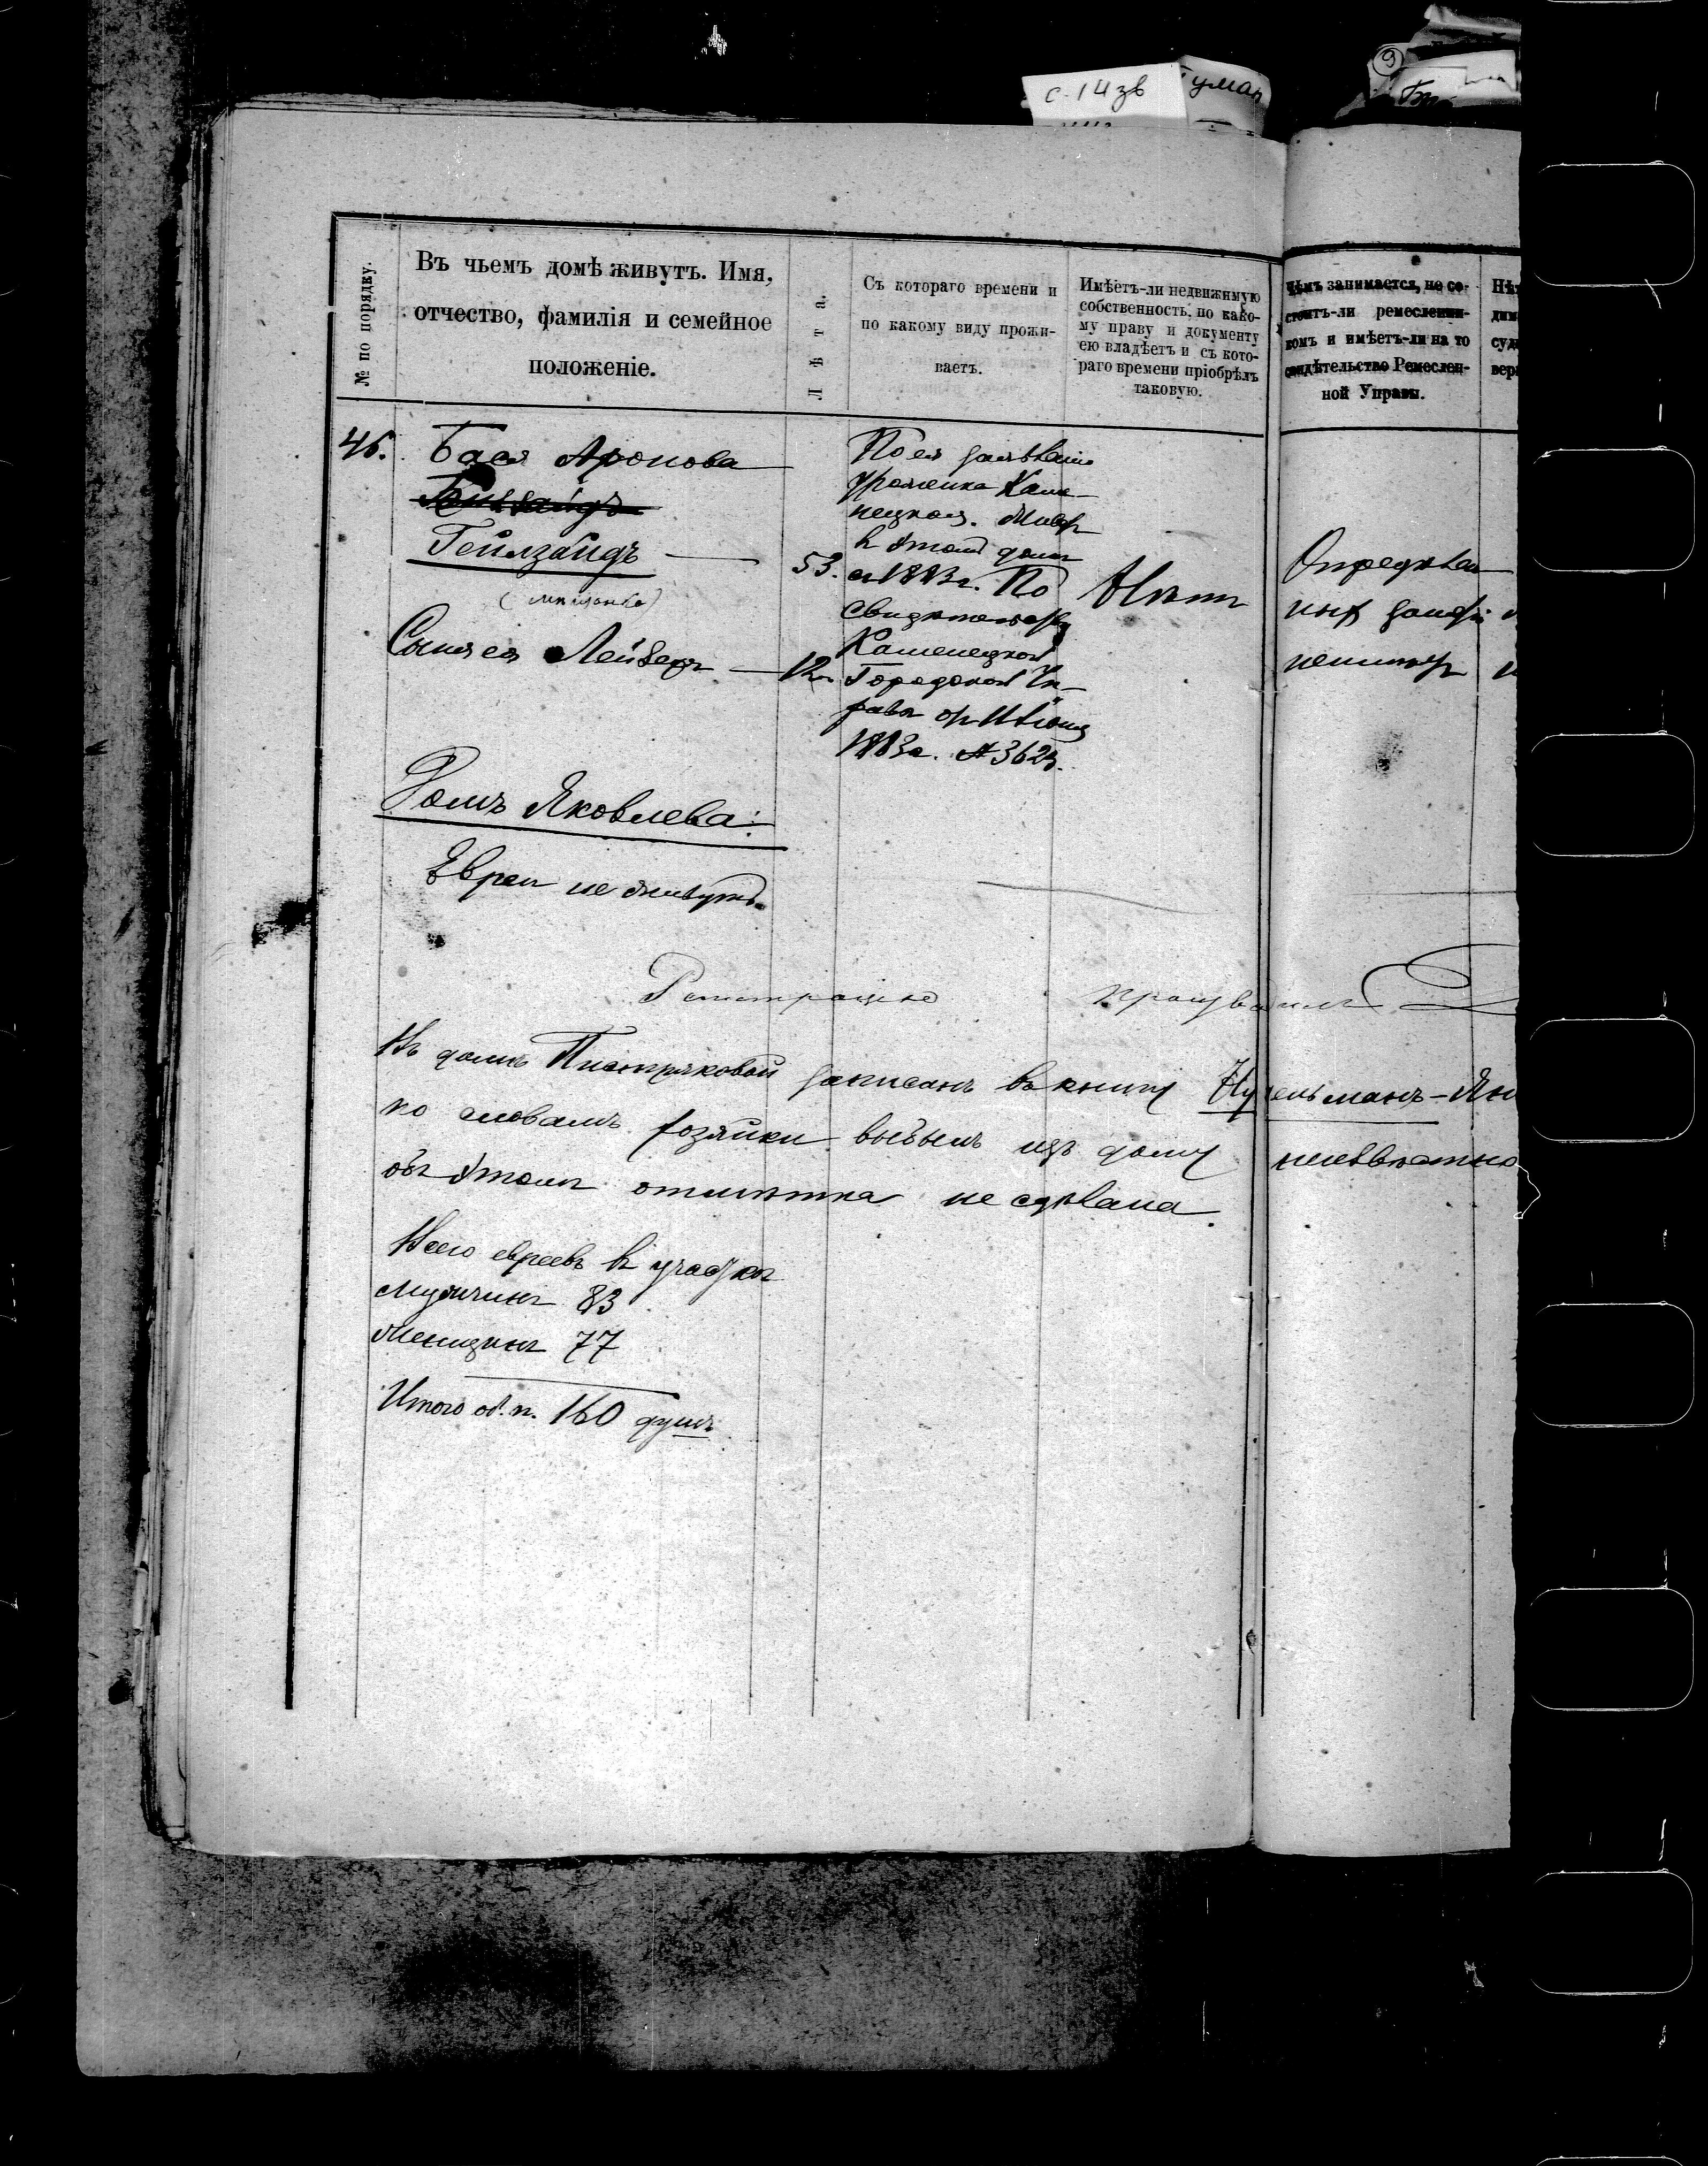 с. 14 зв
Гуман
9
№ по порядку.
Въ чьемъ домѣ живутъ. Имя,
отчество, фамилія и семейное
положеніе.
Лѣта.
Съ котораго времени и
по какому виду прожи-
ваетъ.
Имѣетъ-ли недвижимую
собственность, по како-
му праву и документу
ею владѣетъ и съ кото-
раго времени пріобрѣлъ
таковую.
Чѣмъ занимается, не со-
стоитъ-ли ремесленни-
комъ и имѣетъ-ли на то
свидѣтельство Ремеслен-
ной Управы.
46.
Бася Аронова
Гейлзайдъ
53.
(мѣщанка)
Сынъ ея Лейзеръ
12
По ея заявленію
уроженка Каме-
нецкая. Живетъ
въ этомъ домѣ
съ 1883 г. По
свидѣтельству
Каменецкой
Городской Уп-
равы отъ
1883 г. № 3623.
Нѣтъ
Опредѣлен
ныхъ занятій
неимѣетъ
Домъ Яковлева:
Евреи не живутъ.
Регистрацію производилъ
Въ домѣ Пистряковой записанъ въ книгу Нудельманъ-Ян
по словамъ хозяйки выбылъ изъ дому неизвѣстно
объ этомъ отмѣтка не сдѣлана.
Всего евреевъ въ участкѣ
Мужчинъ 83
Женщинъ 77
Итого об. п. 160 душъ